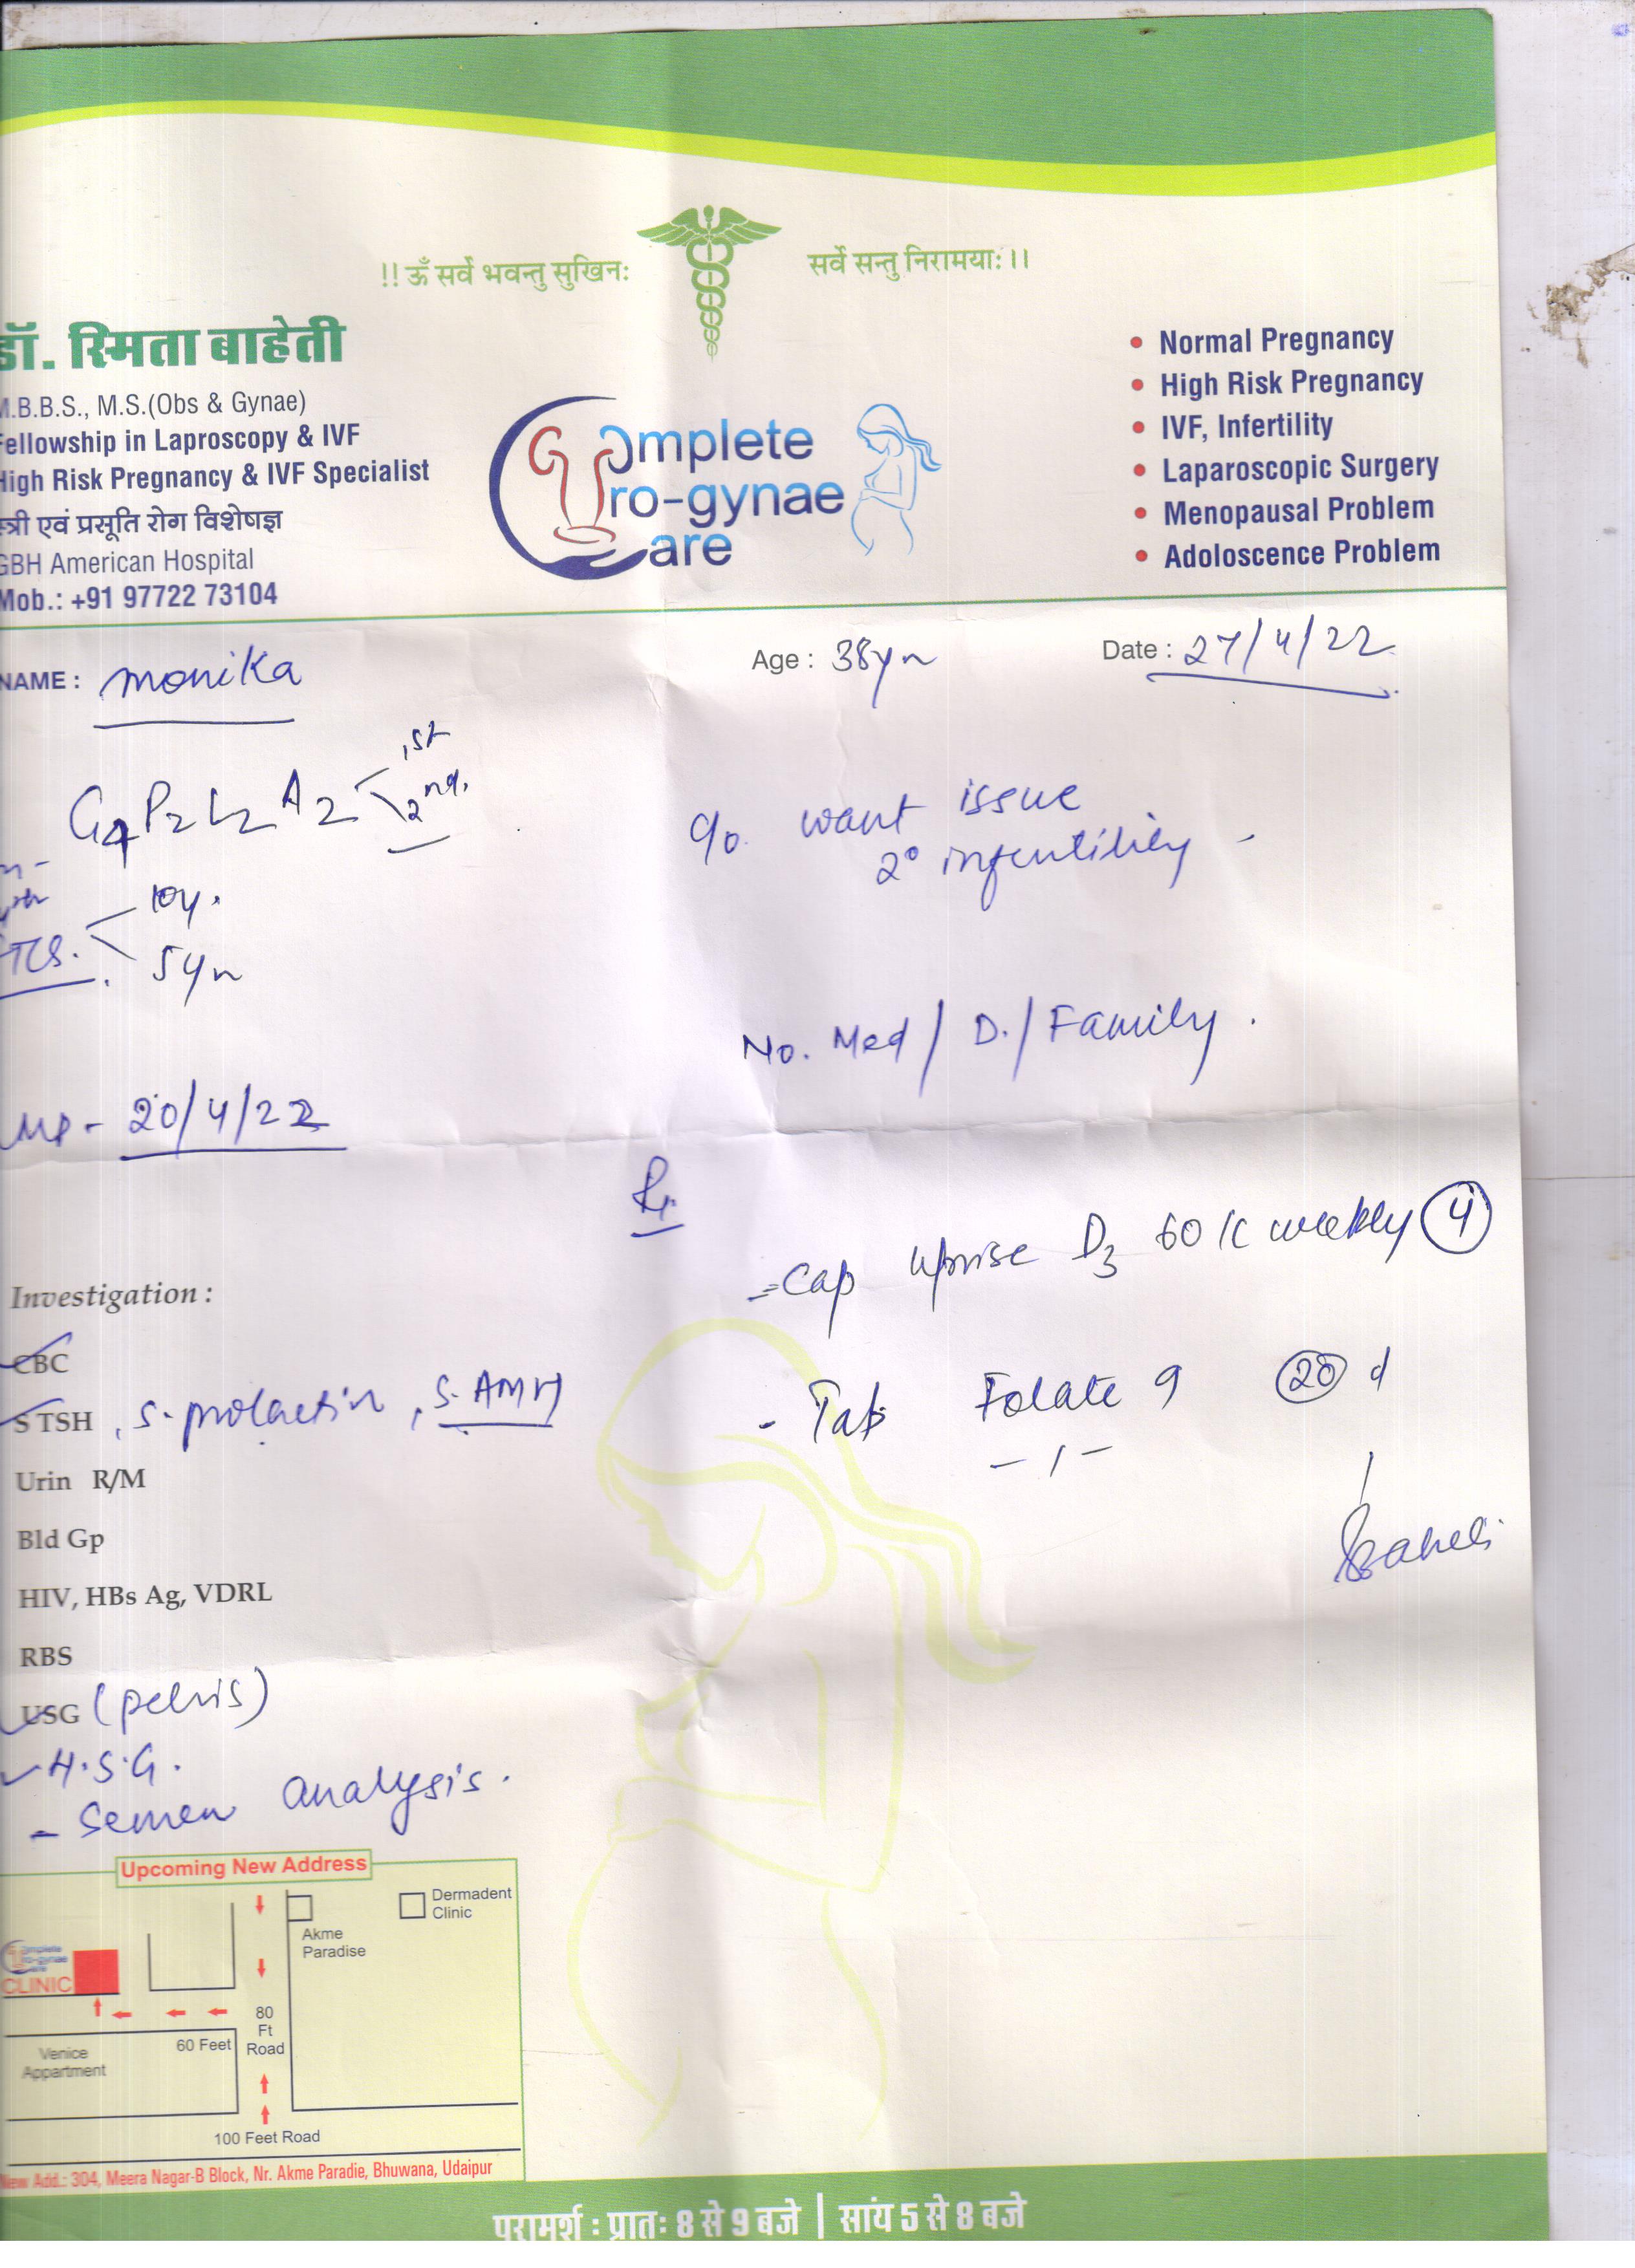 !! ॐ सर्वे भवन्तु सुखिनः
सर्वे सन्तु निरामयाः ।।
डॉ. स्मिता बाहेती
M.B.B.S., M.S.(Obs & Gynae)
Fellowship in Laproscopy & IVF
High Risk Pregnancy & IVF Specialist
स्त्री एवं प्रसूति रोग विशेषज्ञ
GBH American Hospital
Mob.: +91 97722 73104
Complete
Uro-gynae
Care
• Normal Pregnancy
• High Risk Pregnancy
• IVF, Infertility
• Laparoscopic Surgery
• Menopausal Problem
• Adoloscence Problem
NAME : monika
Age : 38yr
Date : 27/4/22
G4P2L2A2 1st
2nd.
c/o. want issue
2° infertility -
10y.
TCS.
5yr
No. Med / D. / Family.
LMP - 20/4/22
Rx
- Cap Uprise D3 60K weekly 4
- Tab Folate 9 20 d
- 1 -
Investigation :
CBC
S TSH, S. prolactin, S. AMH
Urin R/M
Bld Gp
HIV, HBs Ag, VDRL
RBS
USG (pelvis)
H.S.G.
- Semen analysis.
Upcoming New Address
Dermadent
Clinic
Akme
Paradise
Complete
Uro-gynae
Care
CLINIC
80
Ft
Road
60 Feet
Venice
Appartment
100 Feet Road
New Add.: 304, Meera Nagar-B Block, Nr. Akme Paradie, Bhuwana, Udaipur
परामर्श : प्रातः 8 से 9 बजे | सांय 5 से 8 बजे